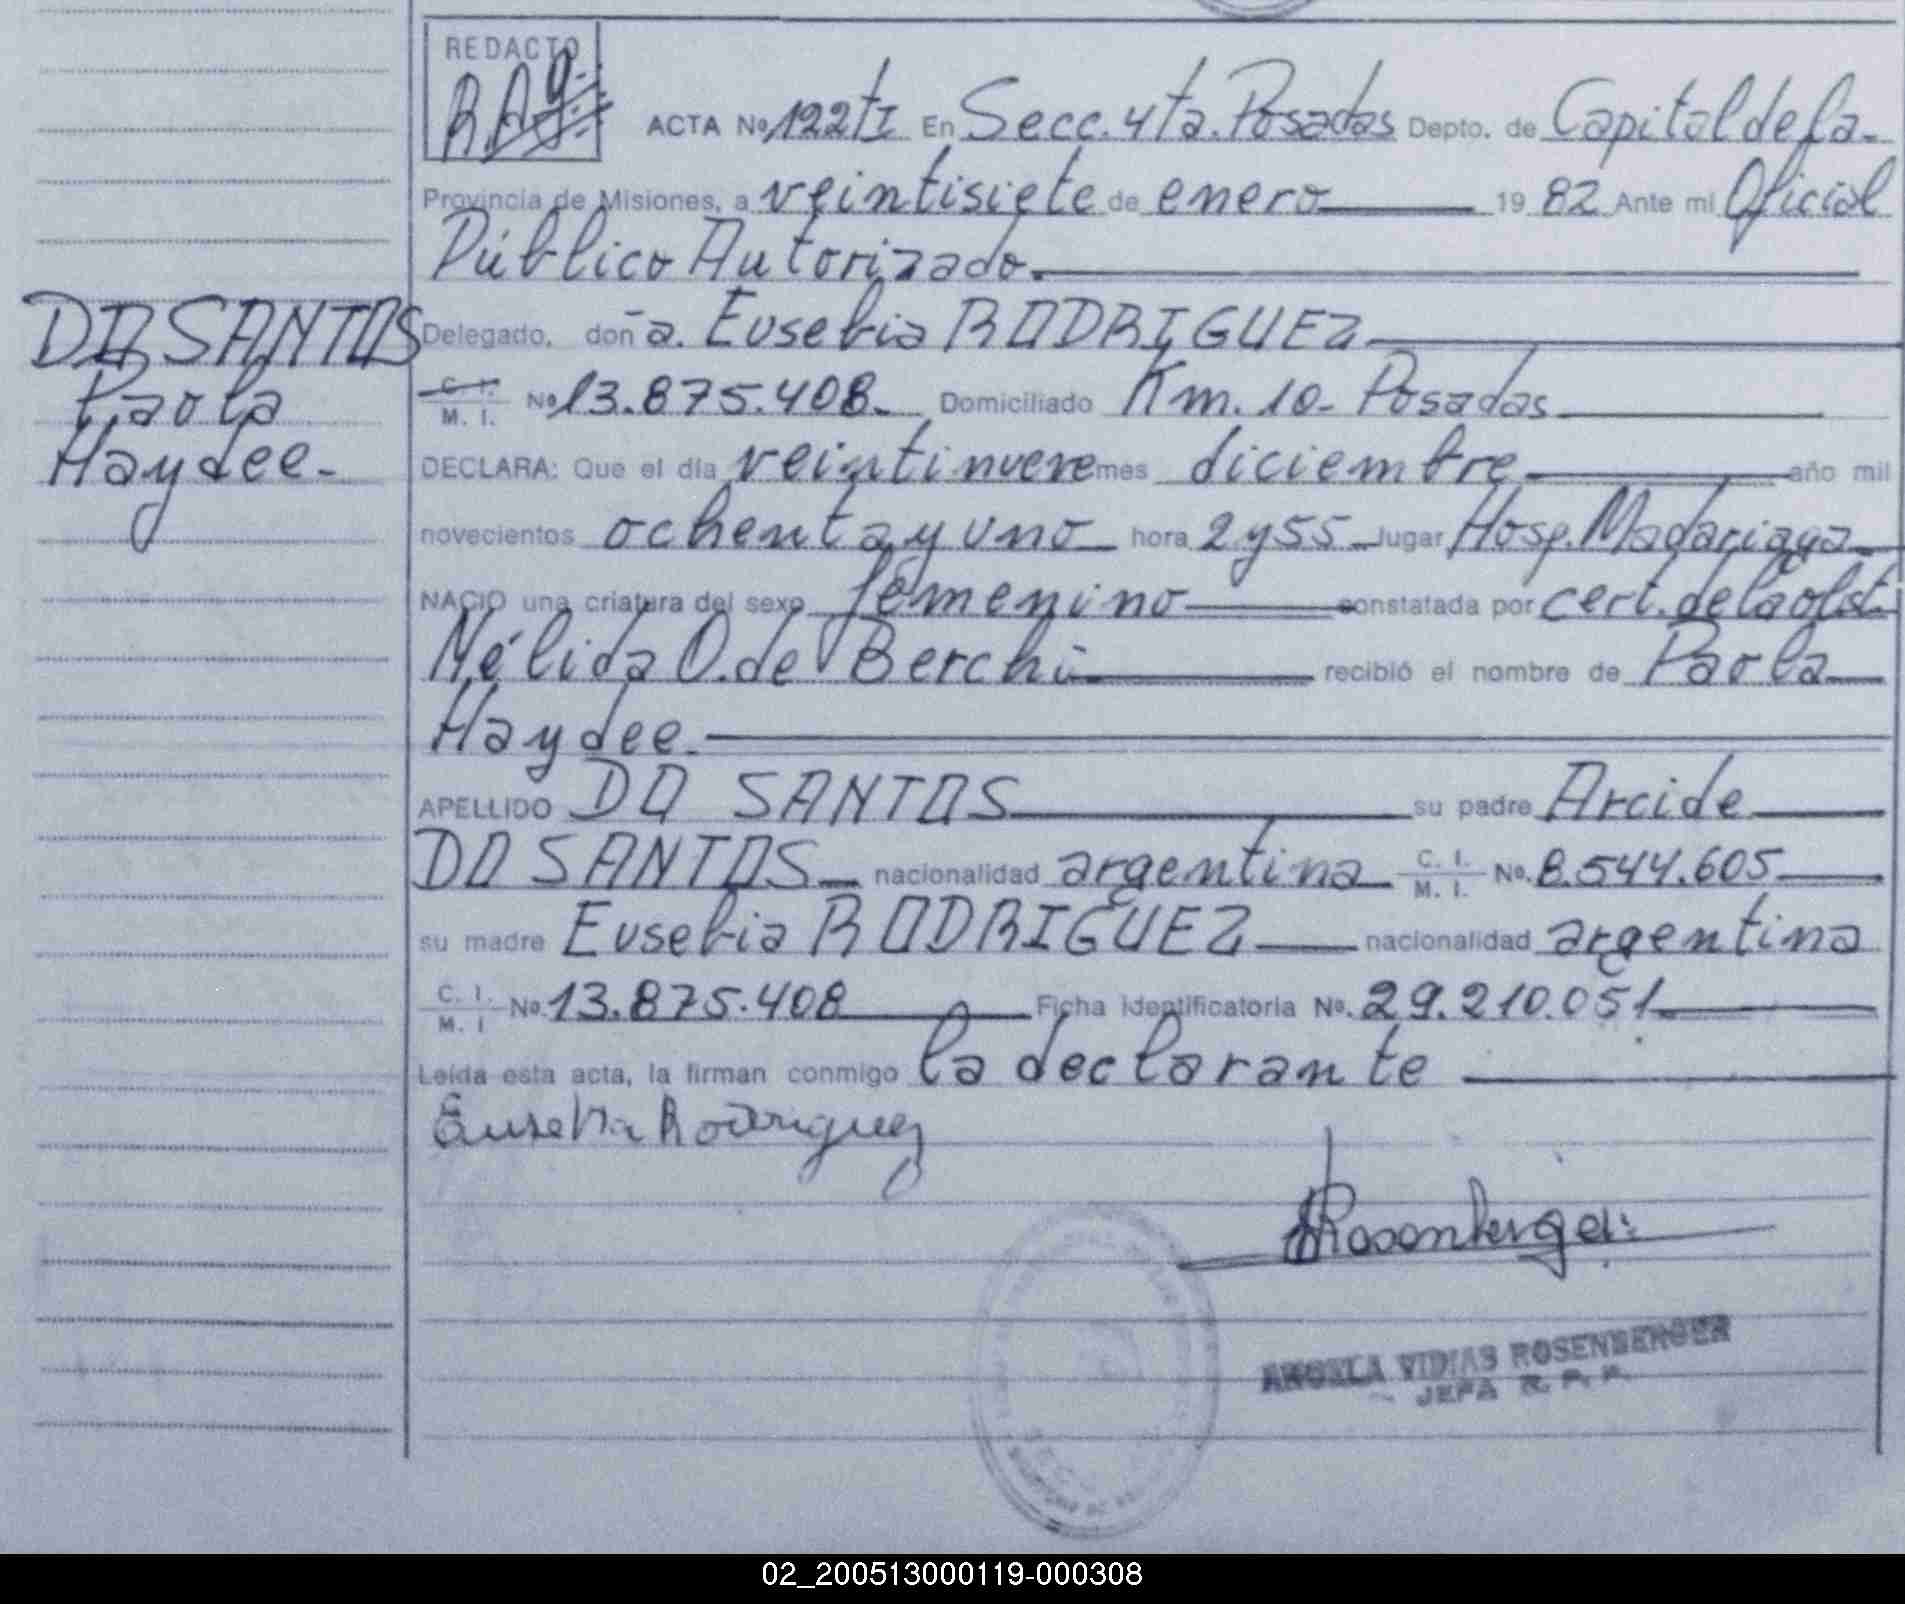 REDACTO
ACTA Nº 122 tI En Secc. 4ta. Posadas Depto. de Capital de la-
Provincia de Misiones, a veintisiete de enero 19 82 Ante mi Oficial
Público Autorizado.
DO SANTOS
Paola
Haydee-
Delegado, doña. Eusebia RODRIGUEZ
C. I. M. I. Nº 13.875.408- Domiciliado Km. 10- Posadas
DECLARA: Que el día veintinueve mes diciembre año mil
novecientos ochenta y uno hora 2 y 55 lugar Hosp. Madariaga
NACIO una criatura del sexo femenino constatada por cert. de la obst.
Nélida O. de Berchi recibió el nombre de Paola
Haydee.
APELLIDO DO SANTOS su padre Arcide
DO SANTOS nacionalidad argentina C. I. M. I. No. 8.544.605
su madre Eusebia RODRIGUEZ nacionalidad argentina
C. I. M. I No. 13.875.408 Ficha identificatoria No. 29.210.051
Leída esta acta, la firman conmigo la declarante
Eusebia Rodriguez
Rosenberger
ANGELA VIDIAS ROSENBERGER
JEFA R. P. P.
02_200513000119-000308